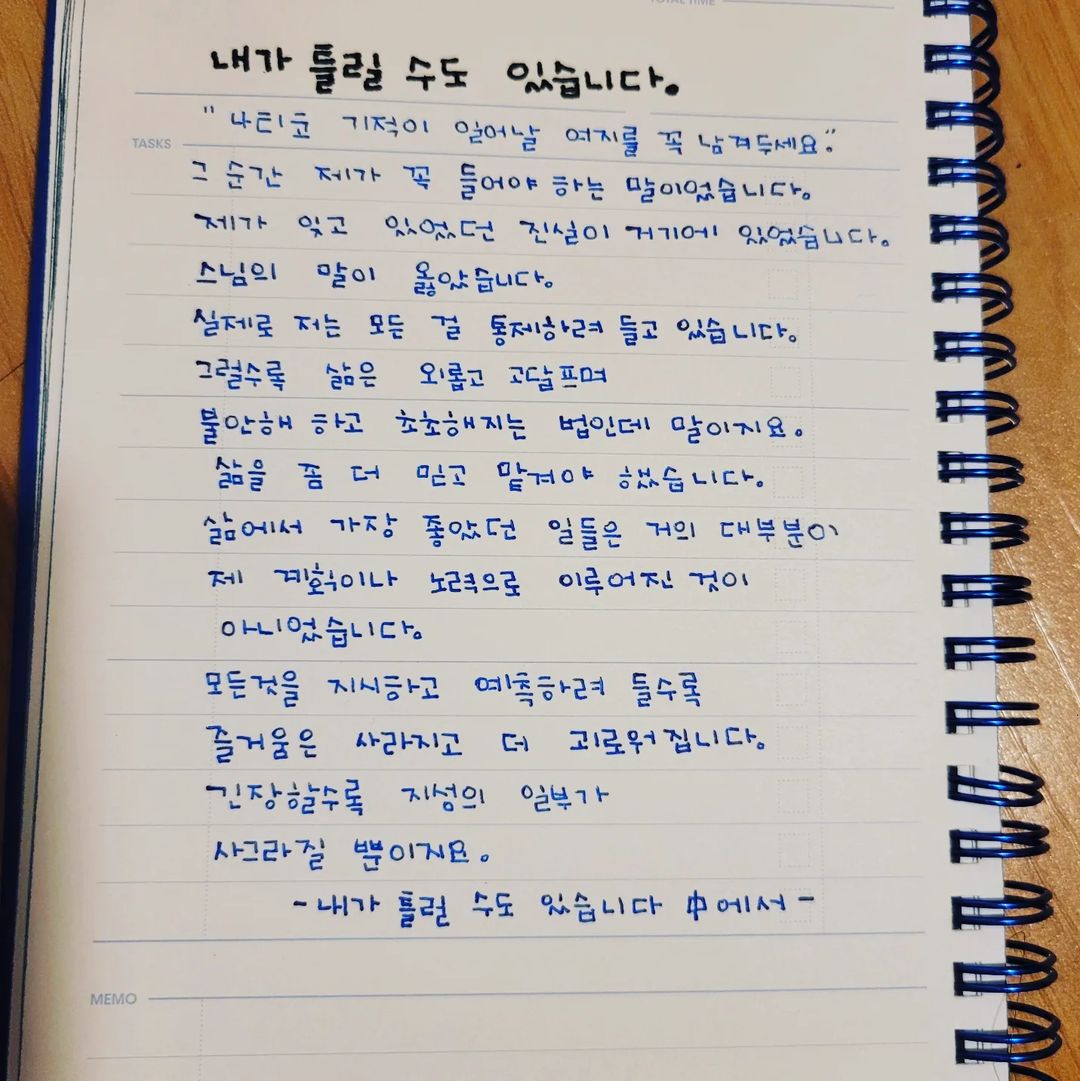 TOTAL TIME
내가 틀릴 수도 있습니다.
"나티코 기적이 일어날 여지를 꼭 남겨두세요."
TASKS
그 순간 제가 꼭 들어야 하는 말이었습니다.
제가 잊고 있었던 진실이 거기에 있었습니다.
스님의 말이 옳았습니다.
실제로 저는 모든 걸 통제하려 들고 있습니다.
그럴수록 삶은 외롭고 고달프며
불안해 하고 초초해지는 법인데 말이지요.
삶을 좀 더 믿고 맡겨야 했습니다.
삶에서 가장 좋았던 일들은 거의 대부분이
제 계획이나 노력으로 이루어진 것이
아니었습니다.
모든것을 지시하고 예측하려 들수록
즐거움은 사라지고 더 괴로워집니다.
긴장할수록 지성의 일부가
사그라질 뿐이지요.
- 내가 틀릴 수도 있습니다 中에서 -
MEMO